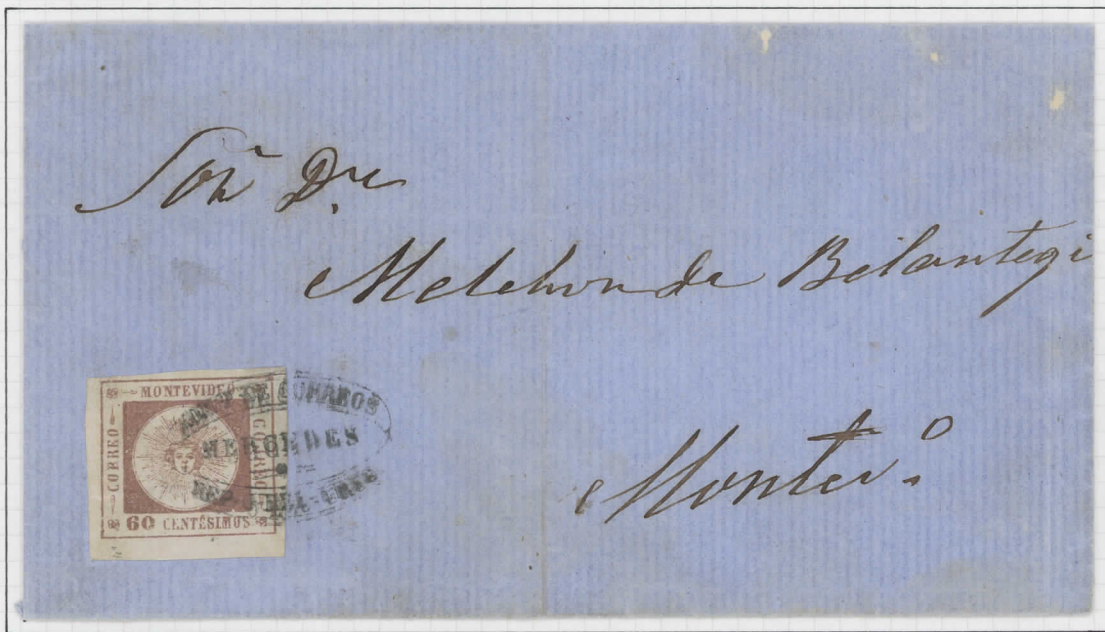 Señ Dn
Melchor de Belaustegi
Montev.o
MONTEVIDEO
CORREO
CORREO
60 CENTÉSIMOS
ADM. N DE CORREOS
MERCEDES
REP. DEL URUG.